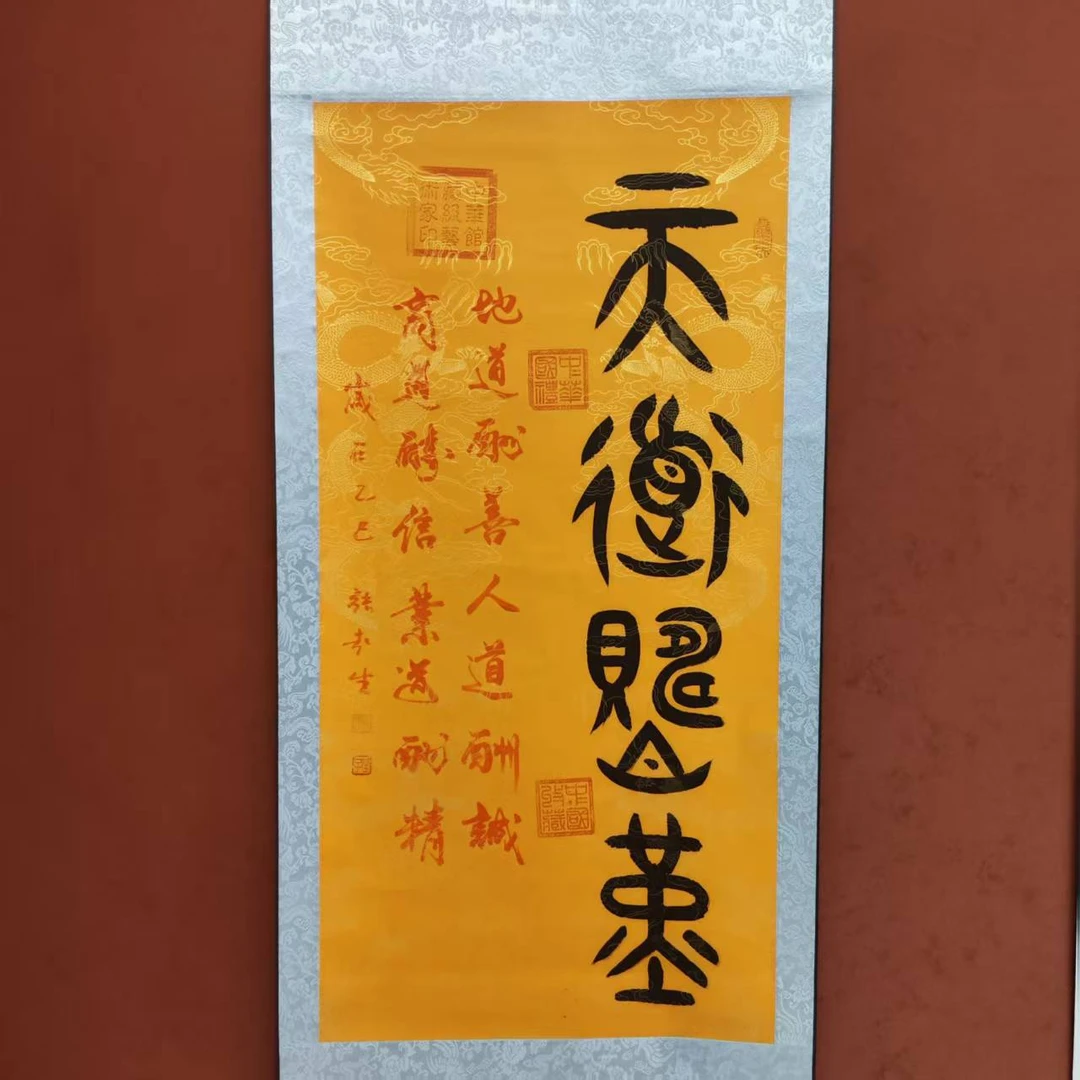 天道酬勤
中華館
級藝
術家印
中華
國禮
中國
收藏
地道酬善人道酬誠
商道酬信業道酬精
歲在乙巳 張生